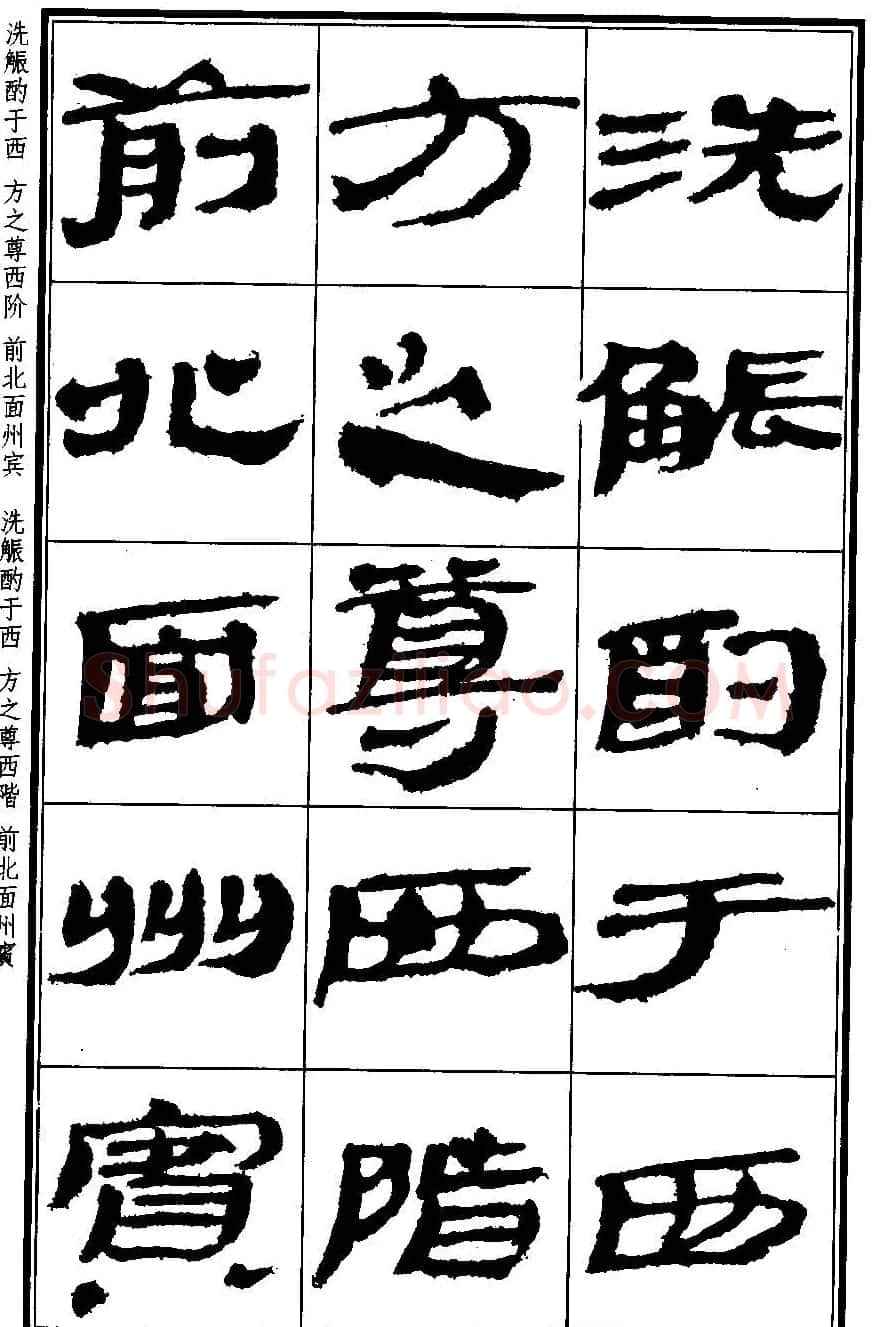 洗觶酌于西
方之尊西階
前北面州賓
洗觶酌于西 方之尊西阶 前北面州宾
洗觶酌于西 方之尊西階 前北面州賓
Shufaziliao.COM